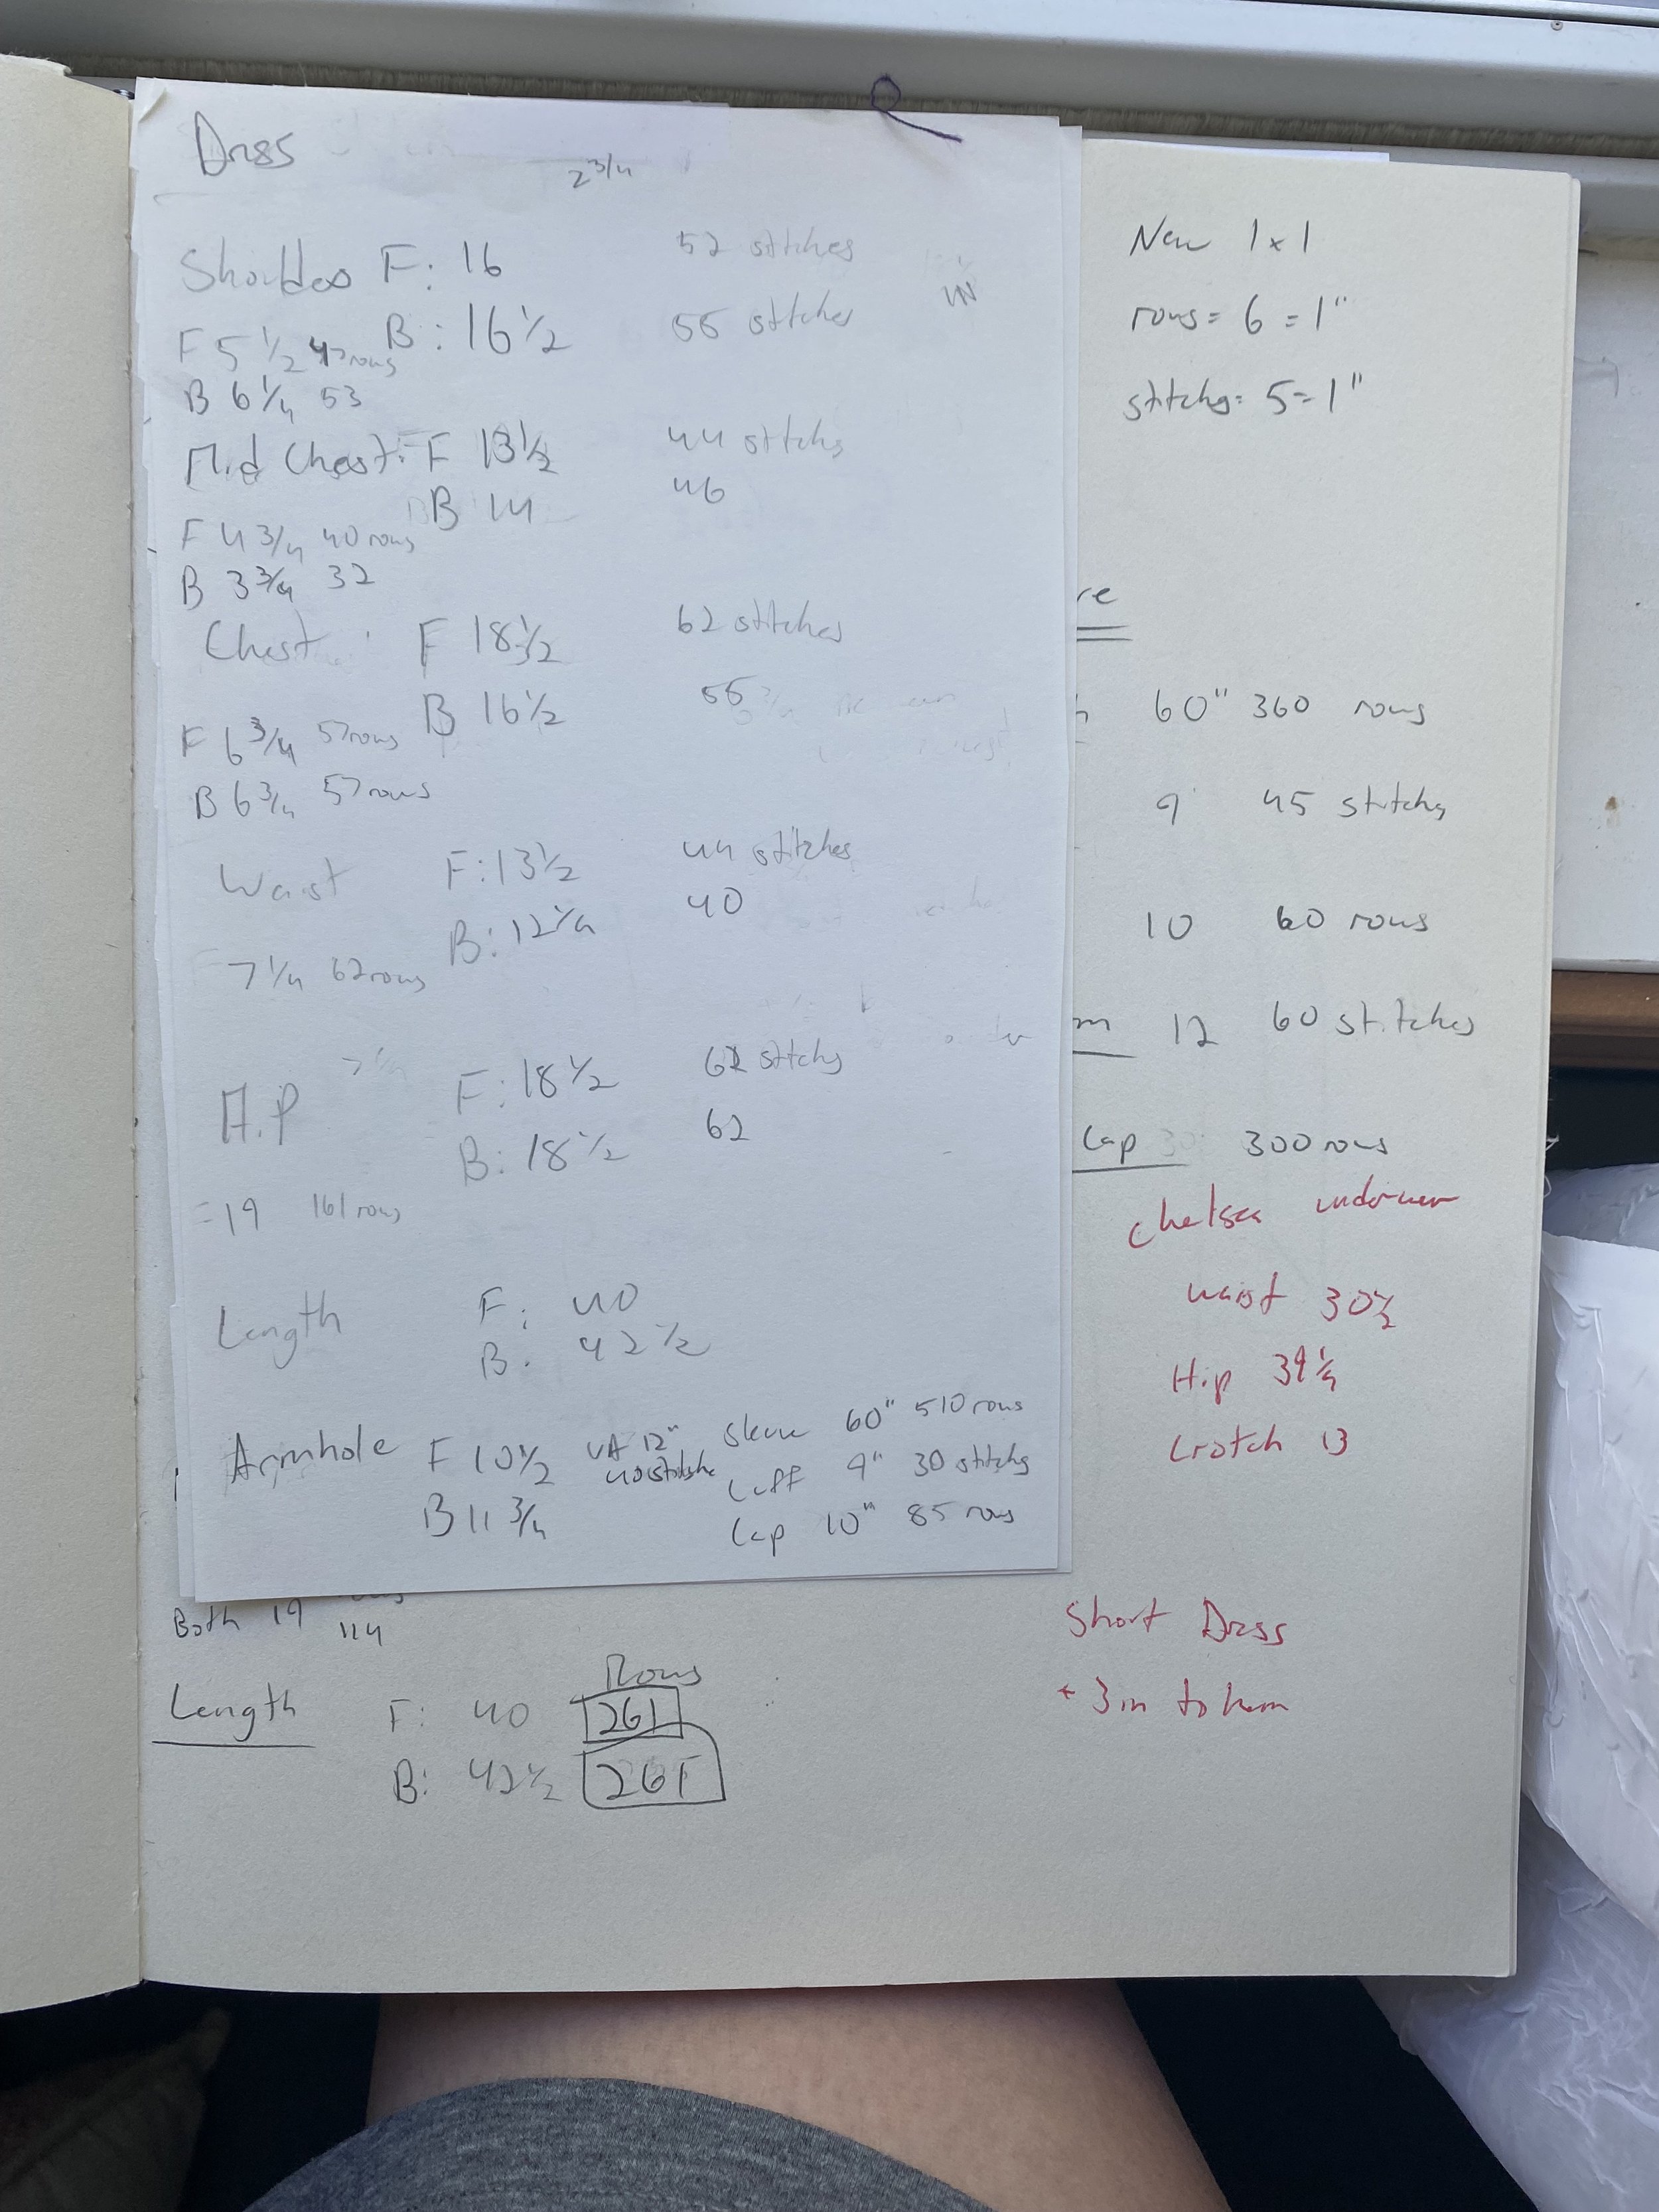 Dress
2 3/4
Shoulders F: 16 52 stitches
B: 16 1/2 55 stitches
F 5 1/2 47 rows
B 6 1/4 53
Mid Chest: F 13 1/2 44 stitchs
B 14 46
F 4 3/4 40 rows
B 3 3/4 32
Chest F 18 1/2 62 stitches
B 16 1/2 55
F 6 3/4 57 rows
B 6 3/4 57 rows
Waist F: 13 1/2 44 stitches
B: 12 1/4 40
7 1/4 62 rows
Hip F: 18 1/2 62 stitchs
B: 18 1/2 62
=19 161 rows
Length F: 40
B: 42 1/2
Armhole F 10 1/2 UA 12"
B 11 3/4
Sleeve 60" 510 rows
Cuff 9" 30 stitchs
Cap 10" 85 rows
Both 19 114
Rows
Length F: 40 261
B: 42 1/2 261
New 1x1
rows = 6 = 1"
stitchs = 5 = 1"
re
60" 360 rows
9 45 stitchs
10 60 rows
m 12 60 stitches
Cap 30 300 rows
Chelsea underwear
waist 30 1/2
Hip 39 1/4
Crotch 13
Short Dress
+ 3 in to hem